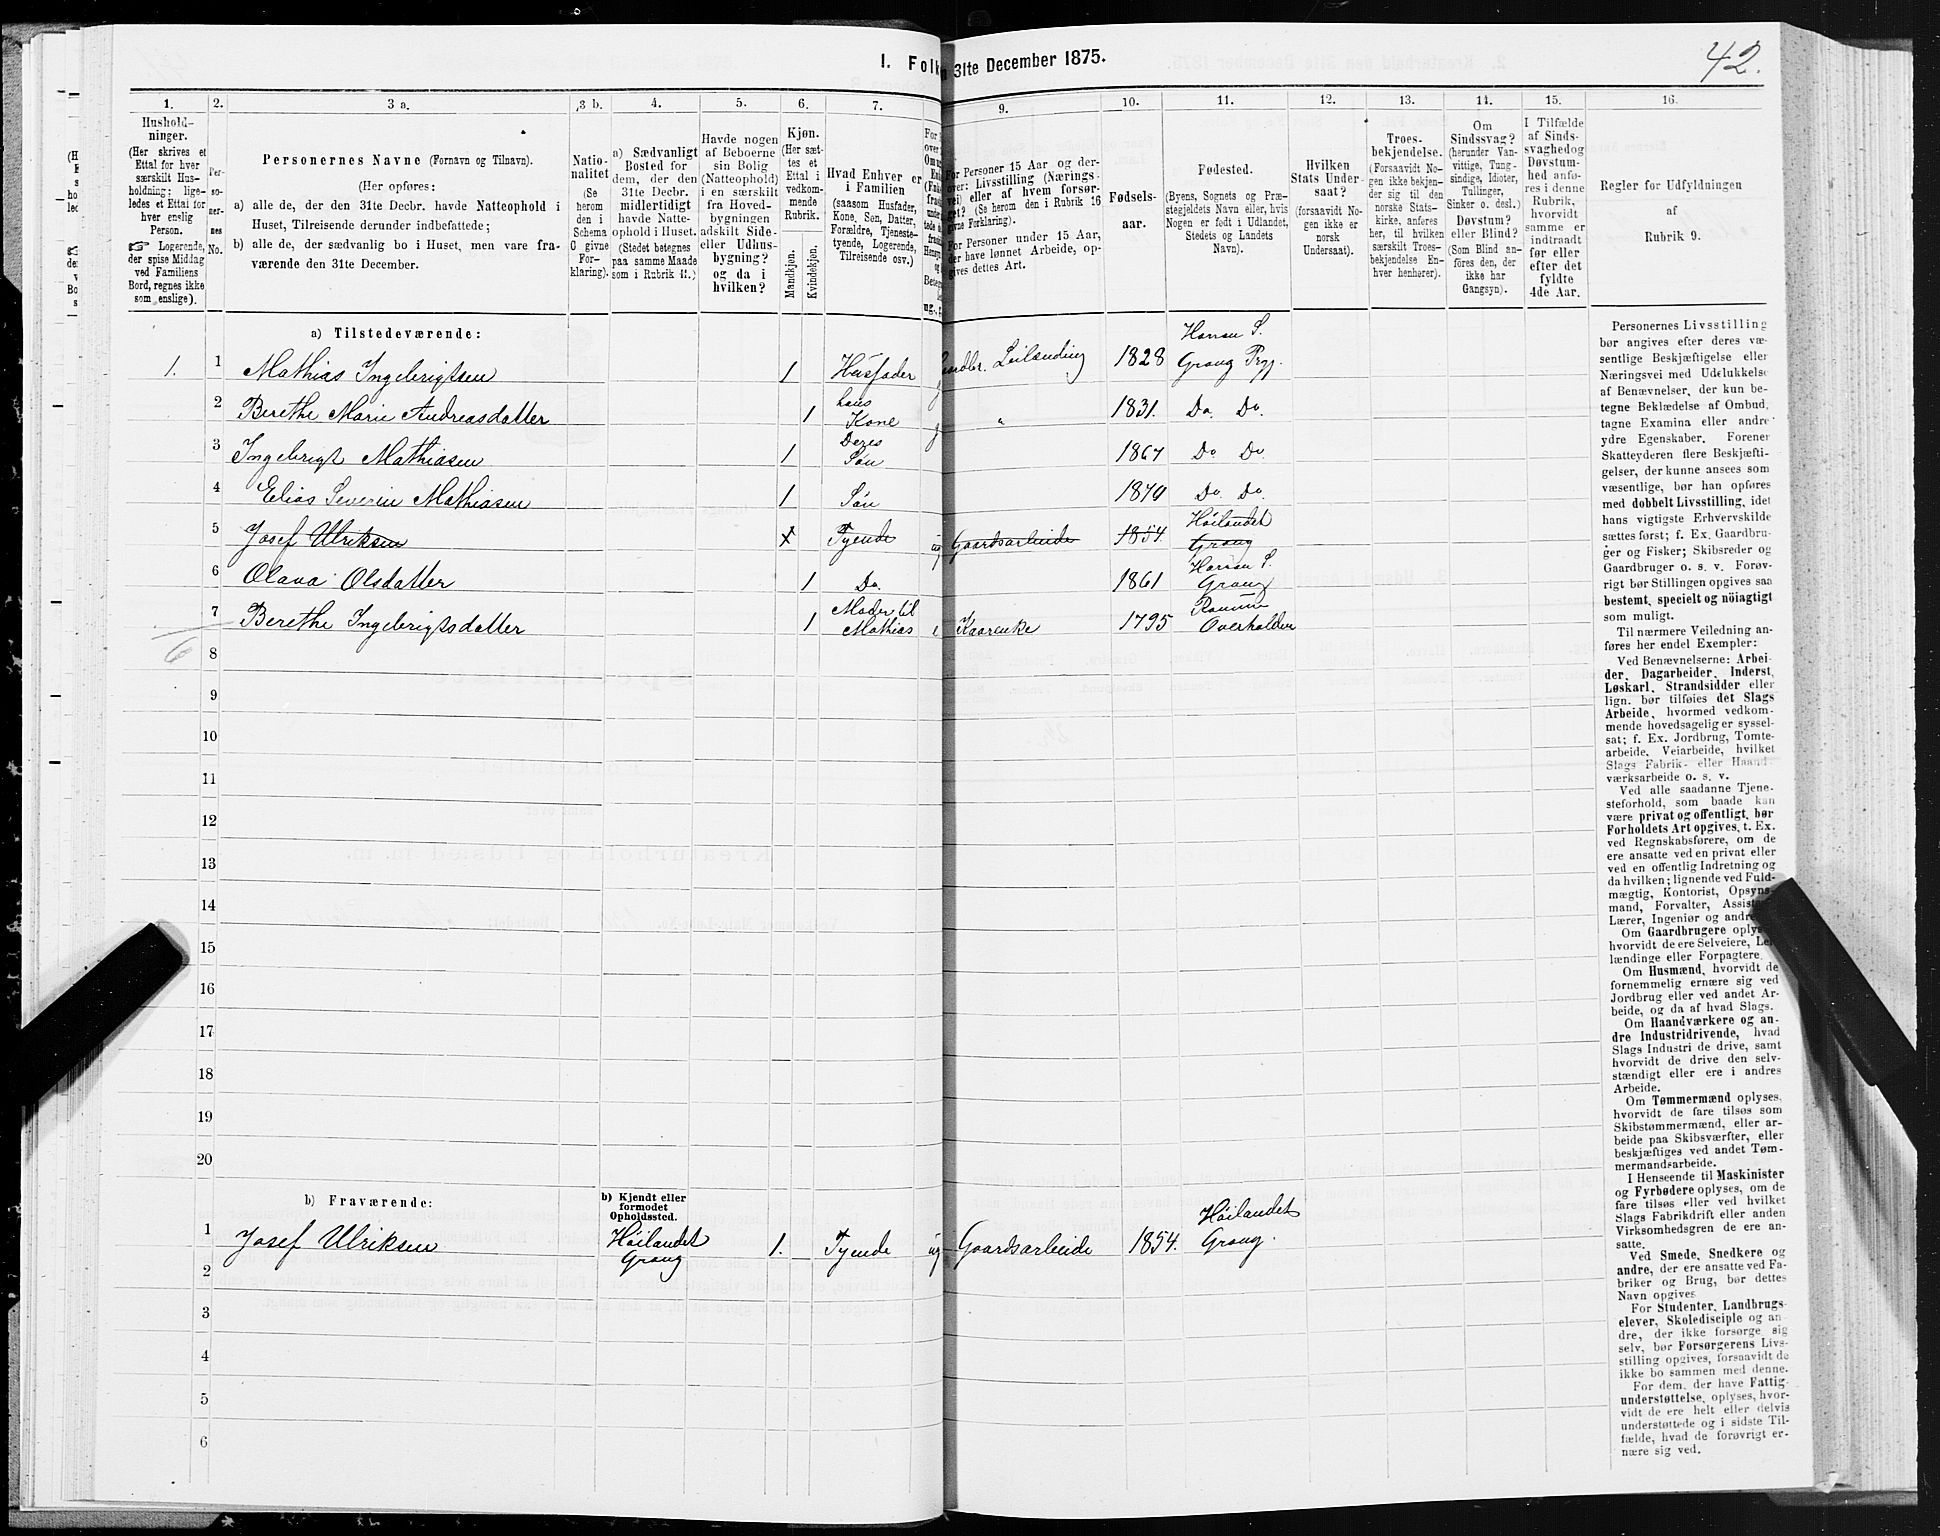 42.
I. Folk
31te December 1875.
1.
2.
3 a.
3 b.
4.
5.
6.
7.
9.
10.
11.
12.
13.
14.
15.
16.
Hushold-
ninger.
(Her skrives et
Ettal for hver
særskilt Hus-
holdning; lige-
ledes et Ettal for
hver enslig
Person.
☞ Logerende,
der spise Middag
ved Familiens
Bord, regnes ikke
som enslige).
Per-
so-
ner-
nes
No.
Personernes Navne (Fornavn og Tilnavn).
(Her opføres:
a) alle de, der den 31te Decbr. havde Natteophold i
Huset, Tilreisende derunder indbefattede;
b) alle de, der sædvanlig bo i Huset, men vare fra-
værende den 31te December.
Natio-
nalitet
(Se
herom
den i
Schema
C givne
For-
klaring).
a) Sædvanligt
Bosted for
dem, der den
31te Decbr.
midlertidigt
havde Natte-
ophold i Huset.
(Stedet betegnes
paa samme Maade
som i Rubrik 11.)
Havde nogen
af Beboerne
sin Bolig
(Natteophold)
i en særskilt
fra Hoved-
bygningen
adskilt Side-
eller Udhus-
bygning?
og da i
hvilken?
Kjøn.
(Her sæt-
tes et
Ettal i
vedkom-
mende
Rubrik.
Mandkjøn.
Kvindekjøn.
Hvad Enhver er
i Familien
(saasom Husfader,
Kone, Søn, Datter,
Forældre, Tjeneste-
tyende, Logerende,
Tilreisende osv.)
For Personer 15 Aar og der-
over: Livsstilling (Nærings-
vei) eller af hvem forsør-
get? (Se herom den i Rubrik 16
givne Forklaring).
For Personer under 15 Aar,
der have lønnet Arbeide, op-
gives dettes Art.
Fødsels-
aar.
Fødested.
(Byens, Sognets og Præ-
stegjeldets Navn eller, hvis
Nogen er født i Udlandet,
Stedets og Landets
Navn).
Hvilken
Stats Under-
saat?
(forsaavidt No-
gen ikke er
norsk
Undersaat).
Troes-
bekjendelse.
(Forsaavidt No-
gen ikke bekjen-
der sig til den
norske Stats-
kirke, anføres
her, til hvilken
særskilt Troes-
bekjendelse En-
hver henhører).
Om
Sindssvag?
(herunder Van-
vittige, Tung-
sindige, Idioter,
Tullinger,
Sinker o. desl.)
Døvstum?
eller Blind?
(Som Blind an-
føres den, der
ikke har
Gangsyn).
I Tilfælde
af Sinds-
svaghed og
Døvstum-
hed anfø-
res i denne
Rubrik,
hvorvidt
samme er
indtraadt
før eller
efter det
fyldte
4de Aar.
Regler for Udfyldningen
af
Rubrik 9.
a) Tilstedeværende:
1. 1 Mathias Ingebrigtsen 1 Husfader Leilending 1828 Harran S. Grong Prgj.
2 Berethe Marie Andreasdatter 1 hans Kone " 1831. Do. Do.
3 Ingebrigt Mathiasen 1 Deres Søn 1867 Do Do.
4 Elias Severin Mathiasen 1 Søn 1870 Do. Do.
5 Josef Ulriksen Tyende ug Gaardsarbeide 1854 Høilandet Grong
6 Olava Olsdatter 1 Do. 1861 Harran S. Grong
7 Berethe Ingebrigtsdatter 1 Moder til Mathias e Kaarenke 1795 Ranum Overhalden
6
8
9
10
11
12
13
14
15
16
17
18
19
20
b) Fraværende:
b) Kjendt eller
formodet
Opholdssted.
1 Josef Ulriksen Høilandet Grong 1. Tyende ug Gaardsarbeide 1854. Høilandet Grong.
2
3
4
5
6
Personernes Livsstilling
bør angives efter deres væ-
sentlige Beskjæftigelse eller
Næringsvei med Udelukkelse
af Benævnelser, der kun be-
tegne Beklædelse af Ombud,
tagne Examina eller andre
ydre Egenskaber. Forener
Skatteyderen flere Beskjæfti-
gelser, der kunne ansees som
væsentlige, bør han opføres
med dobbelt Livsstilling, idet
hans vigtigste Erhvervskilde
sættes først; f. Ex. Gaardbru-
ger og Fisker; Skibsreder og
Gaardbruger o. s. v. Forøv-
rigt bør Stillingen opgives saa
bestemt, specielt og nöiagtigt
som muligt.
Til nærmere Veiledning an-
føres her endel Exempler:
Ved Benævnelserne: Arbei-
der, Dagarbeider, Inderst,
Løskarl, Strandsidder eller
lign. bør tilføies det Slags
Arbeide, hvormed vedkom-
mende hovedsagelig er syssel-
sat; f. Ex. Jordbrug, Tomte-
arbeide, Veiarbeide, hvilket
Slags Fabrik- eller Haand-
værksarbeide o. s. v.
Ved alle saadanne Tjene-
steforhold, som baade kan
være privat og offentligt, bør
Forholdets Art opgives, t. Ex.
ved Regnskabsførere, om de
ere ansatte ved en privat eller
ved en offentlig Indretning og
da hvilken; lignende ved Fuld-
mægtig, Kontorist, Opsyns-
mand, Forvalter,
Lærer, Ingeniør og
Om Gaardbrugere
hvorvidt de ere Selveiere,
lændinge eller Forpagtere.
Om Husmænd, hvorvidt de
fornemmelig ernære sig ved
Jordbrug eller ved andet Ar-
beide, og da af hvad Slags.
Om Haandværkere og an-
dre Industridrivende, hvad
Slags Industri de drive, samt
hvorvidt de drive den selv-
stændigt eller ere i andres
Arbeide.
Om Tømmermænd oplyses,
hvorvidt de fare tilsøs som
Skibstømmermænd, eller ar-
beide paa Skibsværfter, eller
beskjæftiges ved andet Tøm-
mermandsarbeide.
I Henseende til Maskinister
og Fyrbødere oplyses, om de
fare tilsøs eller ved hvilket
Slags Fabrikdrift eller anden
Virksomhedsgren de ere an-
satte.
Ved Smede, Snedkere og
andre, der ere ansatte ved Fa-
briker og Brug, bør dettes
Navn opgives
For Studenter, Landbrugs-
elever, Skoledisciple og an-
dre, der ikke forsørge sig
selv, bør Forsørgerens Livs-
stilling opgives, forsaavidt de
ikke bo sammen med denne.
For dem, der have Fattig-
understøttelse, oplyses, hvor-
vidt de ere helt eller delvis
understøttede og i sidste Til-
fælde, hvad de forøvrigt er-
nære sig ved.